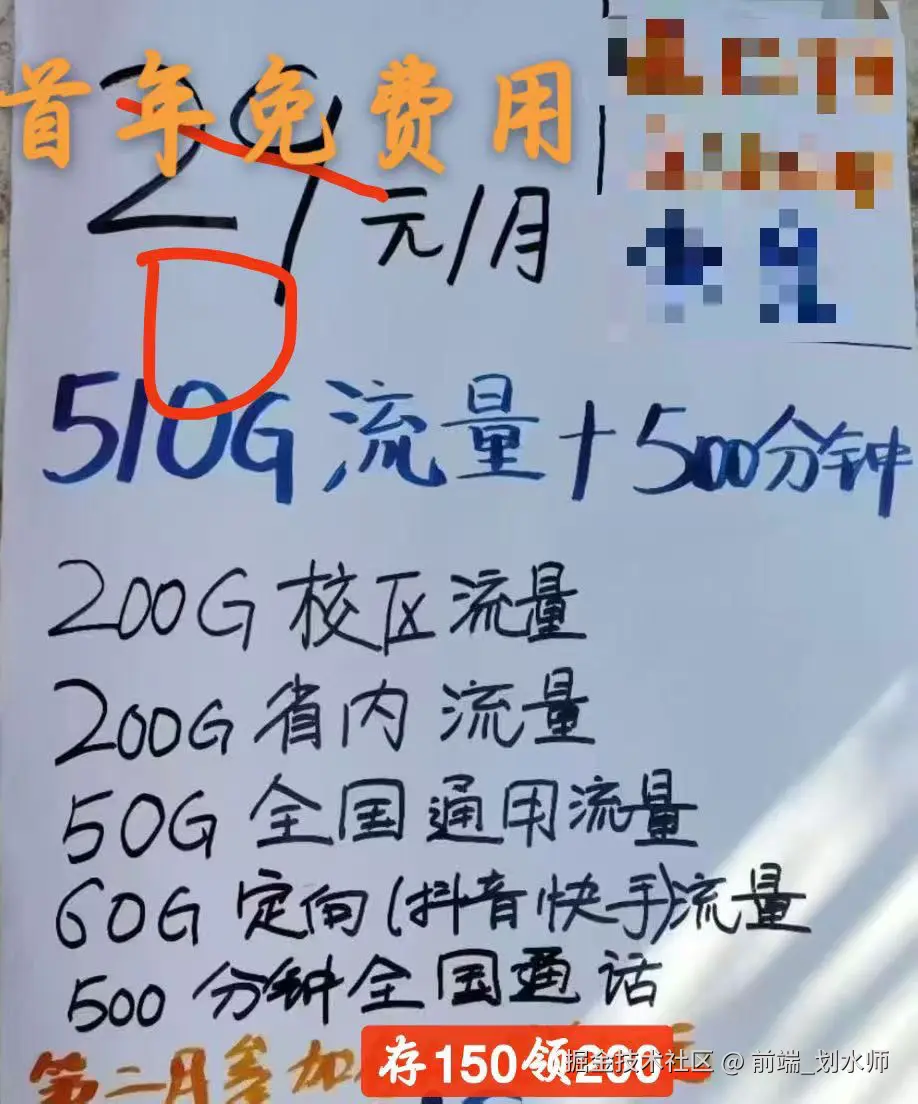 首年免费用
29元/月
510G流量+500分钟
200G校区流量
200G省内流量
50G全国通用流量
60G定向(抖音快手)流量
500分钟全国通话
第二月参加
存150领200
掘金技术社区 @ 前端_划水师